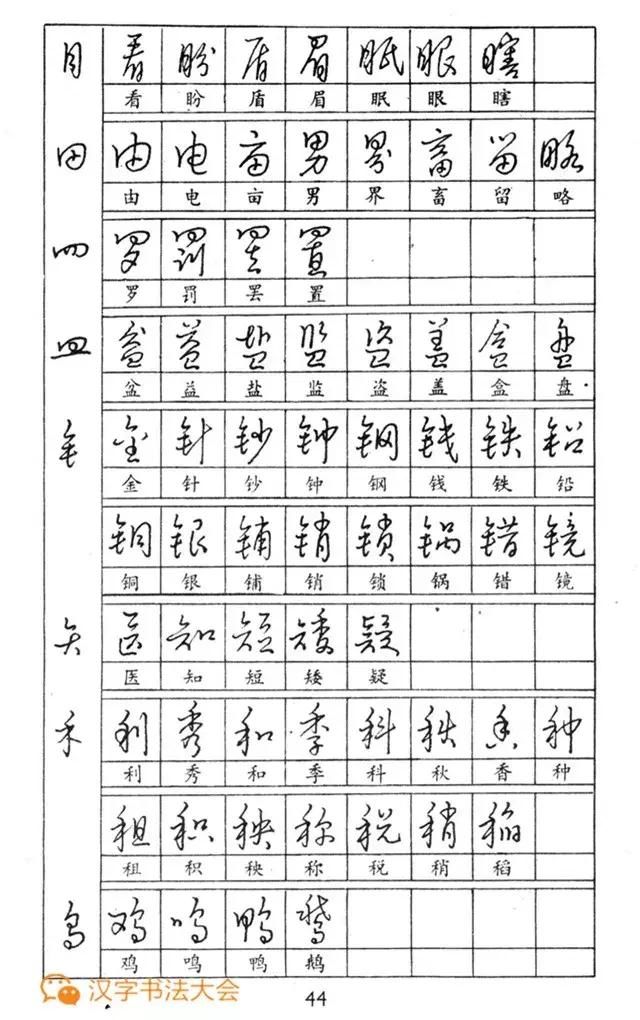 目 看 盼 盾 眉 眠 眼 瞎
看 盼 盾 眉 眠 眼 瞎
田 由 电 亩 男 界 畜 留 略
由 电 亩 男 界 畜 留 略
四 罗 罚 罢 置
罗 罚 罢 置
皿 盆 益 盐 监 盗 盖 盒 盘
盆 益 盐 监 盗 盖 盒 盘
钅 金 针 钞 钟 钢 钱 铁 铅
金 针 钞 钟 钢 钱 铁 铅
铜 银 铺 销 锁 锅 错 镜
铜 银 铺 销 锁 锅 错 镜
矢 医 知 短 矮 疑
医 知 短 矮 疑
禾 利 秀 和 季 科 秋 香 种
利 秀 和 季 科 秋 香 种
租 积 秧 称 税 稍 稻
租 积 秧 称 税 稍 稻
鸟 鸡 鸣 鸭 鹅
鸡 鸣 鸭 鹅
汉字书法大会
44